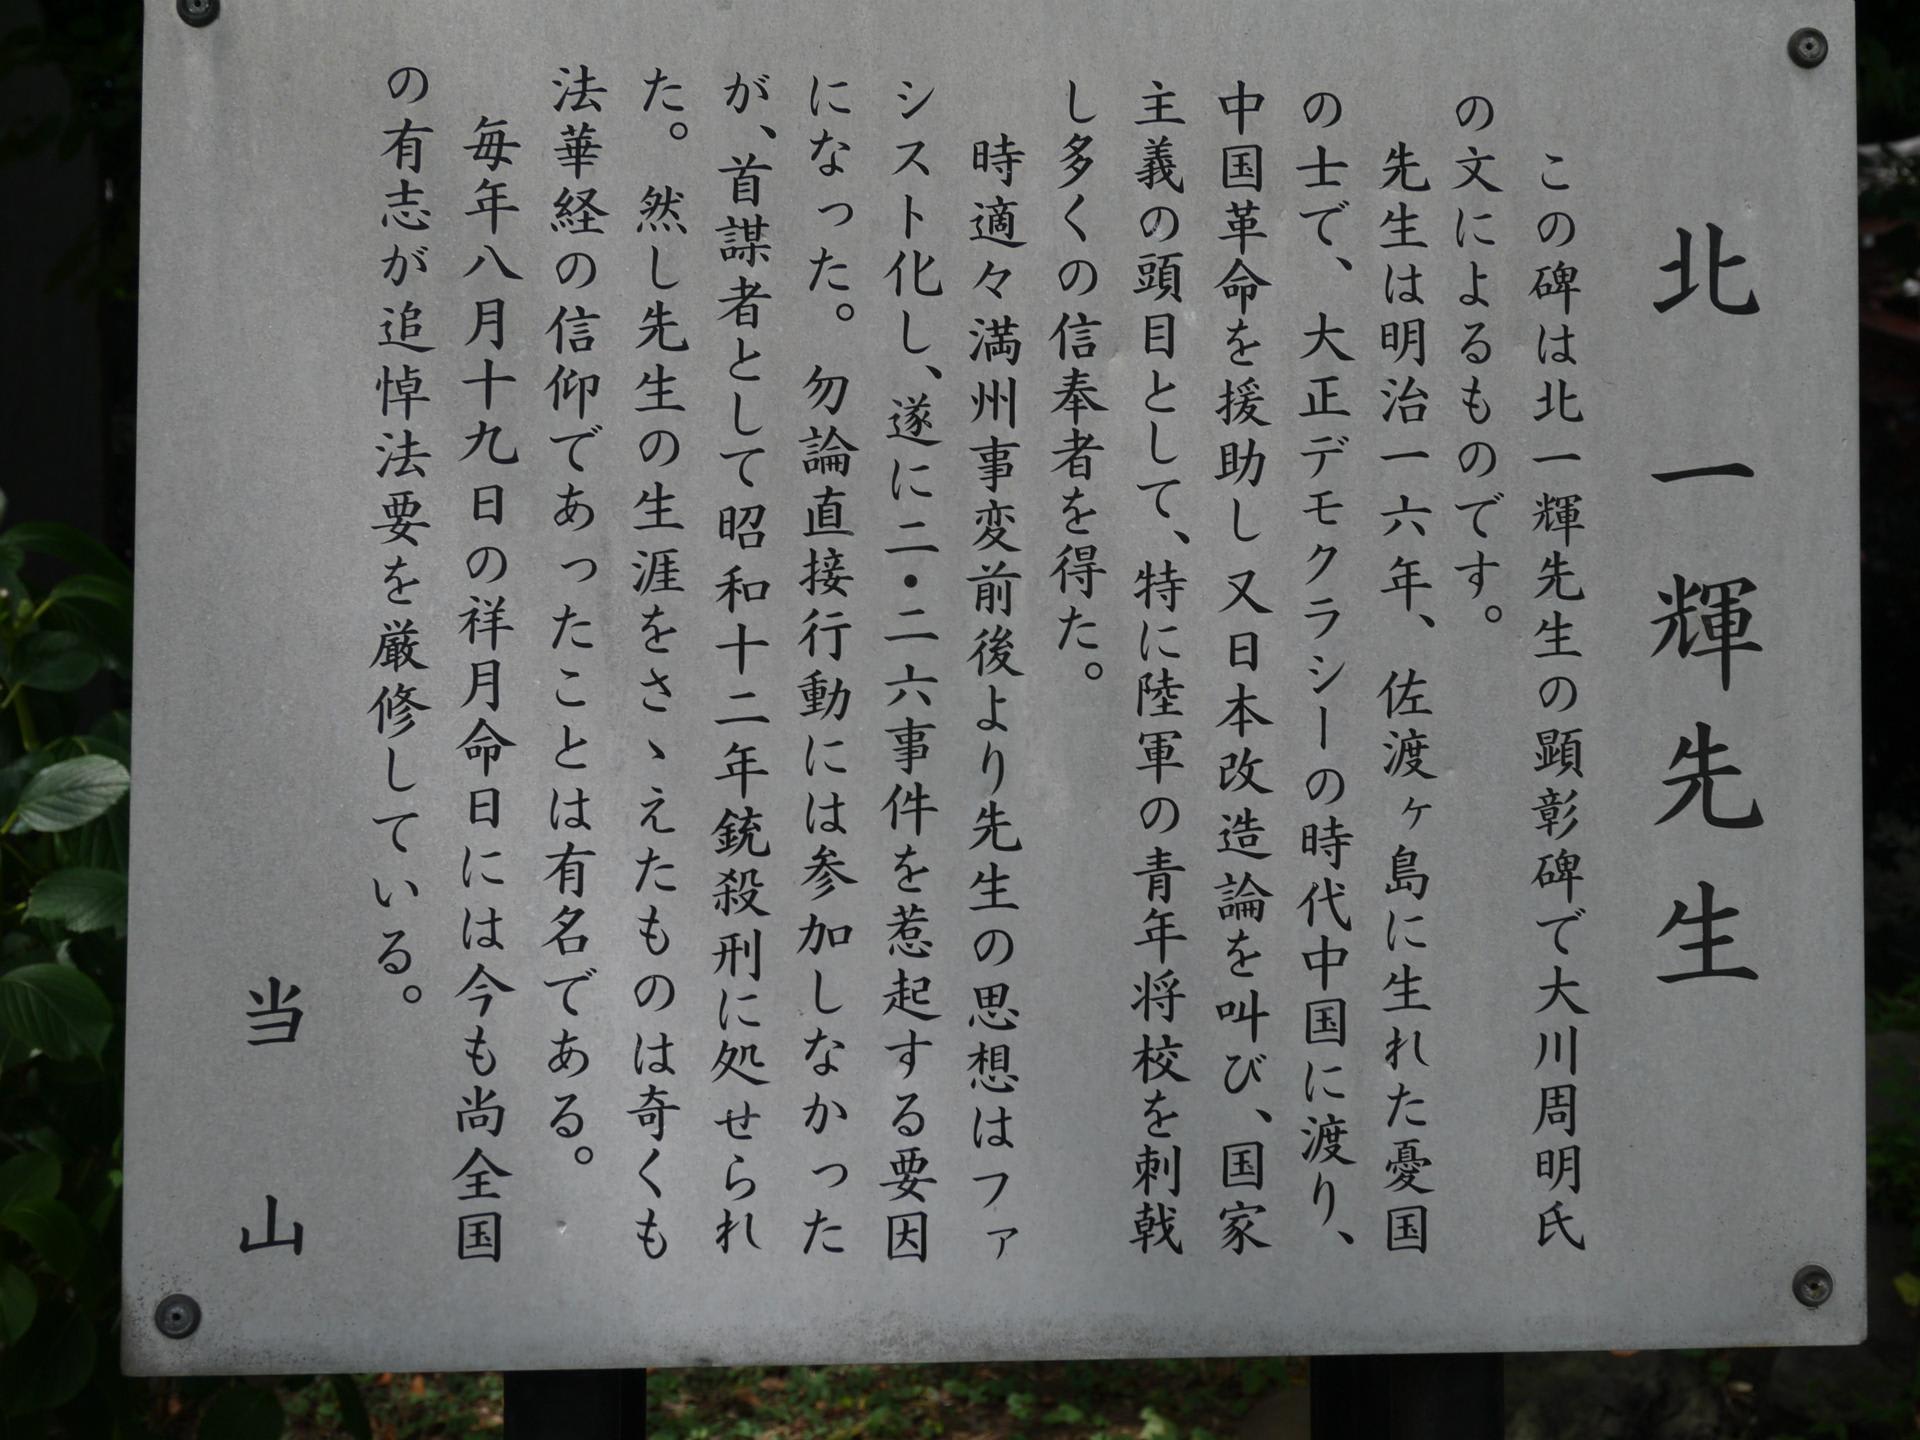 北一輝先生
この碑は北一輝先生の顕彰碑で大川周明氏
の文によるものです。
先生は明治一六年、佐渡ヶ島に生れた憂国
の士で、大正デモクラシーの時代中国に渡り、
中国革命を援助し又日本改造論を叫び、国家
主義の頭目として、特に陸軍の青年将校を刺戟
し多くの信奉者を得た。
時適々満州事変前後より先生の思想はファ
シスト化し、遂に二・二六事件を惹起する要因
になった。勿論直接行動には参加しなかった
が、首謀者として昭和十二年銃殺刑に処せられ
た。然し先生の生涯をさゝえたものは奇くも
法華経の信仰であったことは有名である。
毎年八月十九日の祥月命日には今も尚全国
の有志が追悼法要を厳修している。
当山